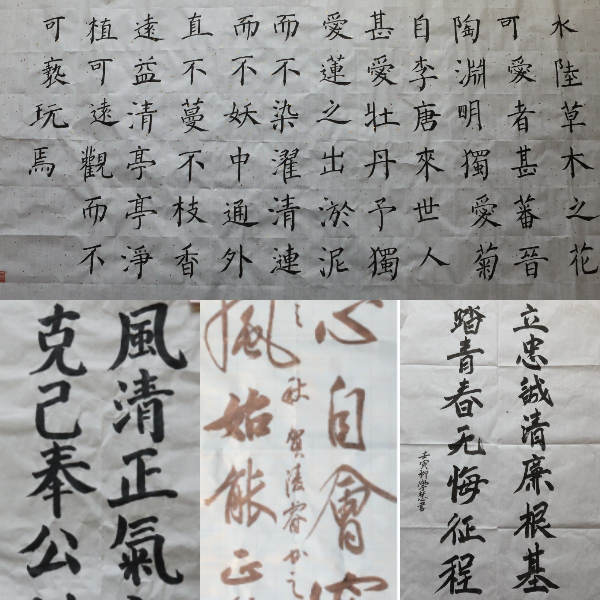 水陸草木之花
可愛者甚蕃晉
陶淵明獨愛菊
自李唐來世人
甚愛牡丹予獨
愛蓮之出淤泥
而不染濯清漣
而不妖中通外
直不蔓不枝香
遠益清亭亭淨
植可遠觀而不
可褻玩焉
風清正氣
克己奉公
心自會
風始能正
立忠誠清廉根基
踏青春无悔征程